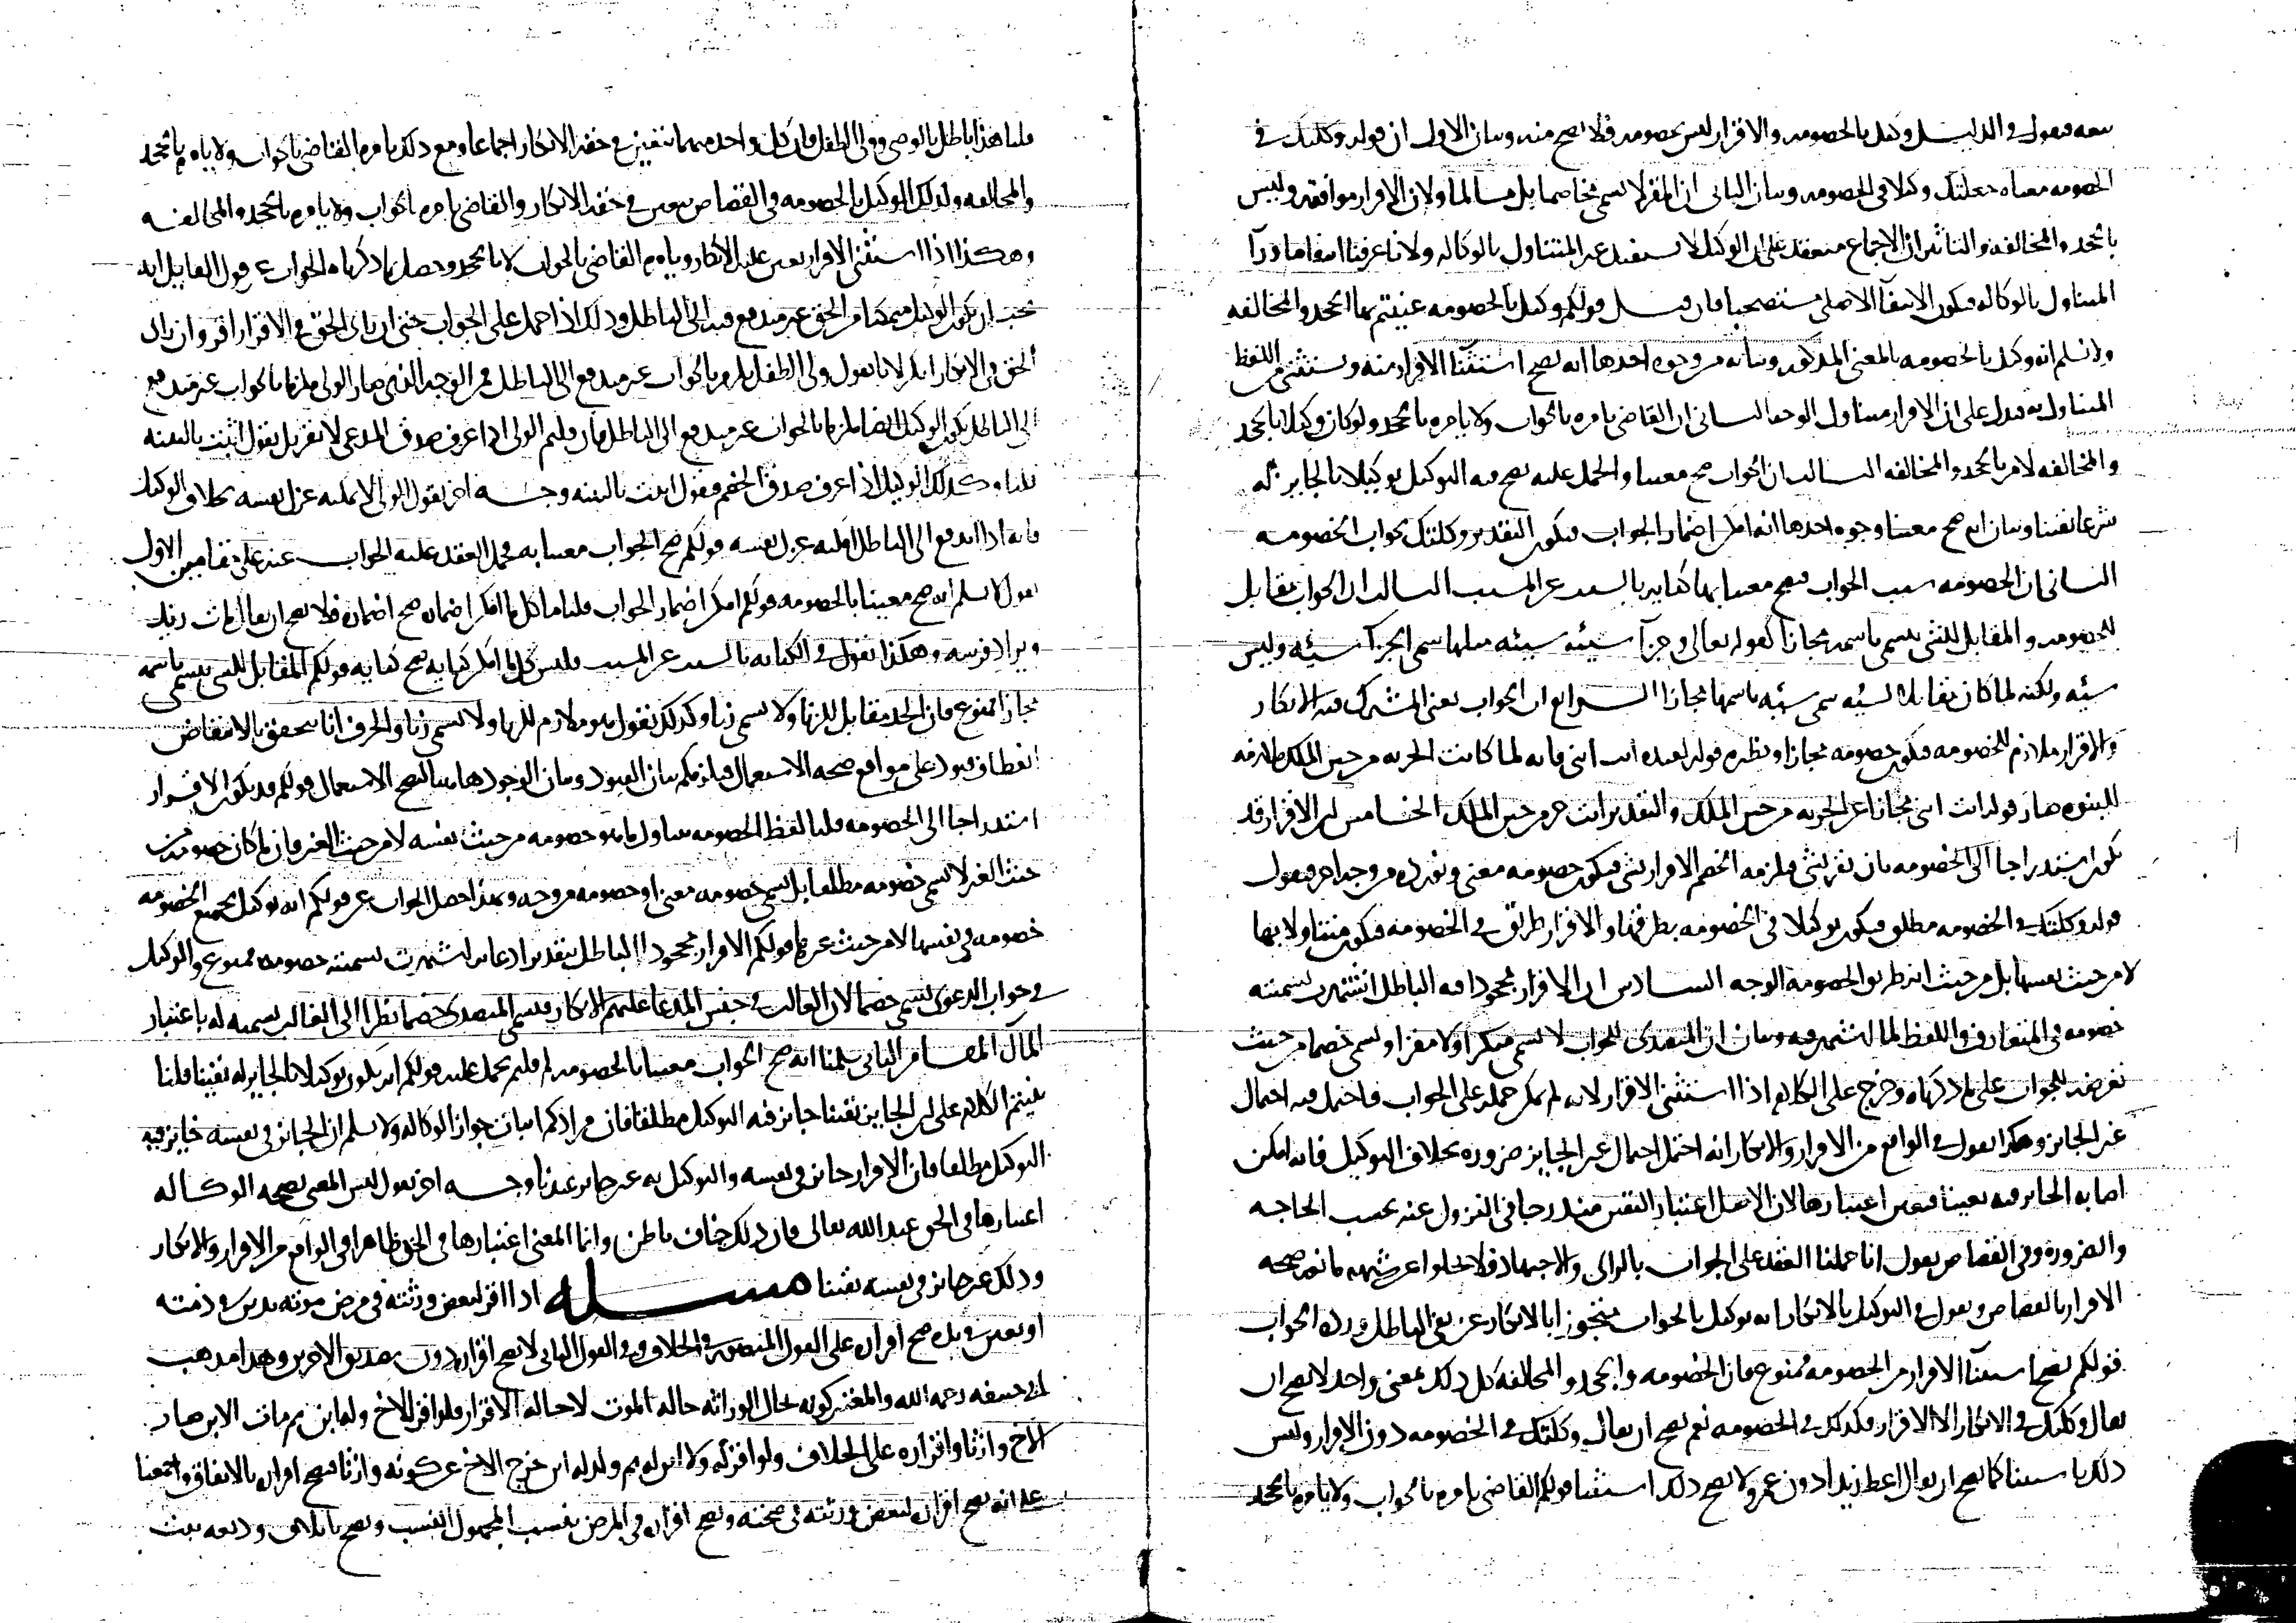 معه فنقول في الدليل وكيل بالخصومه والاقرار ليس بخصومه فلا يصح منه وبيان الاول ان قوله وكلتك في
الخصومه معناه جعلتك وكيلا في الخصومه وبيان الثاني ان المقر لا يسمى مخاصما بل مسالما ولان الاقرار موافقه وليس
بالجحد والمخالفه والثالث ان الاجماع منعقد على ان الوكيل لا يستفيد غير المتناول بالوكاله ولانا عرفنا انتفاء ما ورآ
المتناول بالوكاله فيكون الانتفآ الاصلي مستصحبا فان قيل قولكم وكيل بالخصومه عنيتم بها الجحد والمخالفه
ولا نسلم انه وكيل بالخصومه بالمعنى المذكور وبيانه من وجوه احدها انه يصح استثنآ الاقرار منه ويستثنى من اللفظ
المتناول به فيدل على ان الاقرار متناول الوجه الثاني ان القاضي يامره بالجواب ولا يامره بالجحد ولو كان وكيلا بالجحد
والمخالفه لامر بالجحد والمخالفه الثالث ان الجواب صح معينا والحمل عليه يصح فيه التوكيل توكيلا بالجايز له
شرعا يقينا وبيان انه صح معينا وجوه احدها انه امكن اضمار الجواب فيكون التقدير وكلتك بجواب الخصومه
الثاني ان الخصومه سبب الجواب فيصح معينا بها كنايه بالسبب عن المسبب الثالث ان الجواب يقابل
الخصومه والمقابل للشي يسمى باسمه مجازا كقوله تعالى وجزآ سيئه سيئه مثلها سمى الجزآ سيئه وليس
سيئه ولكنه لما كان يقابل السيئه سمي سيئه باسمها مجازا الرابع ان الجواب يعني المشترك فيه الانكار
والاقرار ملازم للخصومه فيكون خصومه مجازا ونظيره قوله لعبده انت ابني فانه لما كانت الحريه من حين الملك ملازمه
للبنوه صار قوله انت ابني مجازا عن الحريه من حين الملك والتقدير انت حر من حين الملك الخامس ان الاقرار قد
يكون استدراجا الى الخصومه بان يقر بشي فيلزمه الخصم الاقرار بشي فيكون خصومه معنى ونورده من وجه اخر فنقول
قوله وكلتك في الخصومه مطلق فيكون توكيلا في الخصومه بطرقها والاقرار طريق في الخصومه فيكون متناولا بها
لا من حيث نفسها بل من حيث انه طريق الخصومه الوجه السادس ان الاقرار مجحودا فيه الباطل اشتهرت تسميته
خصومه في المتعارف واللفظ لما اشتهر فيه وبيان ان المتصدي للجواب لا يسمى منكرا ولا مقرا ويسمى خصما من حيث
تعرضه للجواب على ما ذكرناه وخرج على الكلام اذا استثنى الاقرار لانه لم يمكن حمله على الجواب فاحتمل فيه احتمال
غير الجايز وهكذا نقول في الواقع من الاقرار والانكار انه احتمل احتمال غير الجايز ضروره بخلاف التوكيل فانه امكن
اصابه الجايز فيه يقينا فتعين اعتبارها لان الاصل اعتبار اليقين مندرجا في النزول عنه بحسب الحاجه
والضروره وفي القصاص نقول انا حملنا العقد على الجواب بالراى والاجتهاد فلا يخلوا عن شبهه مانعه صحه
الاقرار بالقصاص ونقول في التوكيل بالانكار انه توكيل بالجواب متجوزا بالانكار عن نفي الباطل ورده الجواب
قولكم يصح استثنآ الاقرار من الخصومه ممنوع فان الخصومه والجحد والمخالفه كل ذلك بمعنى واحد لا يصح ان
يقال وكلتك في الانكار الا الاقرار فكذلك في الخصومه نعم يصح ان يقال وكلتك في الخصومه دون الاقرار وليس
ذلك باستثنا كما يصح ان يقال اعط زيدا دون عمرو ولا يصح ذلك استثنا قولكم القاضي يامره بالجواب ولا يامره بالجحد
قلنا هذا باطل بالوصي وولي الطفل فان كل واحد منهما يتعين في حقه الانكار اجماعا ومع ذلك يامره القاضي بالجواب ولا يامره بالجحد
والمخالفه وكذلك الوكيل بالخصومه في القصاص يتعين في حقه الانكار والقاضي يامره بالجواب ولا يامره بالجحد والمخالفه
وهكذا اذا استثنى الاقرار يتعين عليه الانكار ويامره القاضي بالجواب لا بالجحد وحصل بما ذكرناه الجواب عن قول القايل انه
يجب ان يكون الوكيل متمكنا من الحق غير مندفع فيه الى الباطل وذلك اذا حمل على الجواب حتى ان راى الحق في الاقرار اقر وان راى
الحق في الانكار انكر لانا نقول ولي الطفل يلزم بالجواب غير مندفع الى الباطل فمن الوجه الذي صار الولي ملزما بالجواب غير مندفع
الى الباطل يكون الوكيل ايضا ملزما بالجواب غير مندفع الى الباطل فان قلتم الولي اذا عرف صدق المدعى لا يقر بل يقول اثبت بالبينه
قلنا وكذلك الوكيل اذا عرف صدق الخصم فيقول اثبت بالبينه وجه اخر نقول الولي لا يمكنه عزل نفسه بخلاف الوكيل
فانه اذا اندفع الى الباطل امكنه عزل نفسه قولكم صح الجواب معينا به فحمل العقد عليه الجواب عنه على مقامين الاول
نقول لا نسلم انه صح معينا بالخصومه قولكم امكن اضمار الجواب قلنا ما كل ما امكن اضماره صح اضماره فلا يصح ان يقال مات زيد
ويراد فرسه وهكذا نقول في الكنايه بالسبب عن المسبب فليس كل ما امكن كنايه صح كنايه قولكم المقابل للشي يسمى باسمه
مجازا ممنوع فان الحد مقابل للزنا ولا يسمى زنا وكذلك نقول هو ملازم للزنا ولا يسمى زنا والحرف انا نتحقق بالانتقاض
انعطاف قيود على مواقع صحه الاستعمال فيلزمكم بيان القيود وبيان الوجود هاهنا ليصح الاستعمال قولكم قد يكون الاقرار
استدراجا الى الخصومه قلنا لفظ الخصومه يتناول ما هو خصومه من حيث نفسه لا من حيث الغير فان ما كان خصومه من
حيث الغير لا يسمى خصومه مطلقا بل يسمى خصومه معنى او خصومه من وجه وبهذا حصل الجواب عن قولكم انه توكيل بجميع الخصومه
خصومه في نفسها لا من حيث غيرها قولكم الاقرار مجحودا الباطل بتقدير ادعائه اشتهرت تسميته خصومه ممنوع والوكيل
في جواب الدعوى يسمى خصما لان الغالب في جنس المدعا عليهم الانكار فيسمى المتصدي خصما نظرا الى الغالب تسميه له باعتبار
المآل المقام الثاني سلمنا انه صح الجواب معينا بالخصومه لم قلتم يحمل عليه قولكم انه يكون توكيلا بالجايز له يقينا قلنا
بنيتم الكلام على ان الجايز يقينا جايز فيه التوكيل مطلقا فان مرادكم اثبات جواز الوكاله ولا نسلم ان الجايز في نفسه جايز فيه
التوكيل مطلقا فان الاقرار جايز في نفسه والتوكيل به غير جايز عندنا وجه اخر نقول ليس المعنى بصحه الوكاله
اعتبارها في الحق عند الله تعالى فان ذلك خاف باطن وانما المعنى اعتبارها في الحق ظاهرا في الواقع من الاقرار والانكار
وذلك غير جايز في نفسه يقينا مسله اذا اقر لبعض ورثته في مرض موته بدين في ذمته
او بعين في يده صح اقراره على القول المنصور في الخلاف وفي القول الثاني لا يصح اقراره دون تصديق الاخرين وهذا مذهب
ابي حنيفه رحمه الله والمعتبر كونه بحال الوراثه حاله الموت لا حاله الاقرار فلو اقر للاخ وله ابن ثم مات الابن صار
الاخ وارثا واقراره على الخلاف ولو اقر له ولا ابن له ثم ولد له ابن خرج الاخ عن كونه وارثا فيصح اقراره بالاتفاق واجمعنا
على انه يصح اقراره لبعض ورثته في صحته ويصح اقراره في المرض بنسب المجهول النسب ويصح باتلاف وديعه بيت